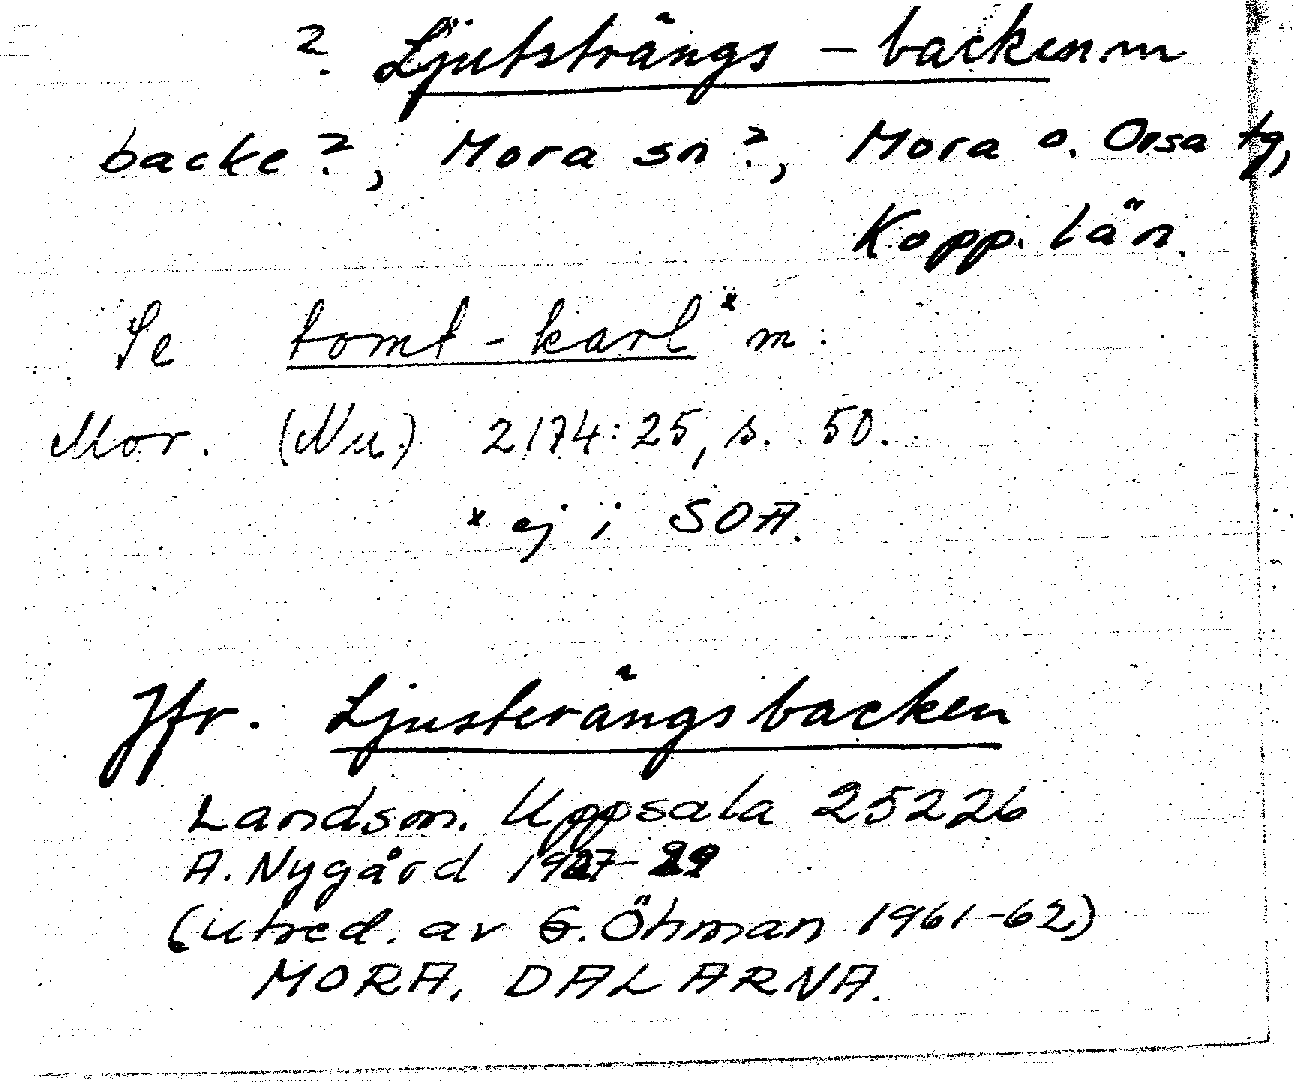 ? Ljutsträngs-backen. m
backe?, Mora sn?, Mora o. Orsa tg,
Kopp. län.
Se tomt-karl* m.
Mor. (Nu.) 2174:25, s. 50.
* ej i SOA.
Jfr. Ljusterängsbacken
Landsm. Uppsala 25226
A. Nygård 1927-29
(utred. av G. Öhman 1961-62)
MORA, DALARNA.